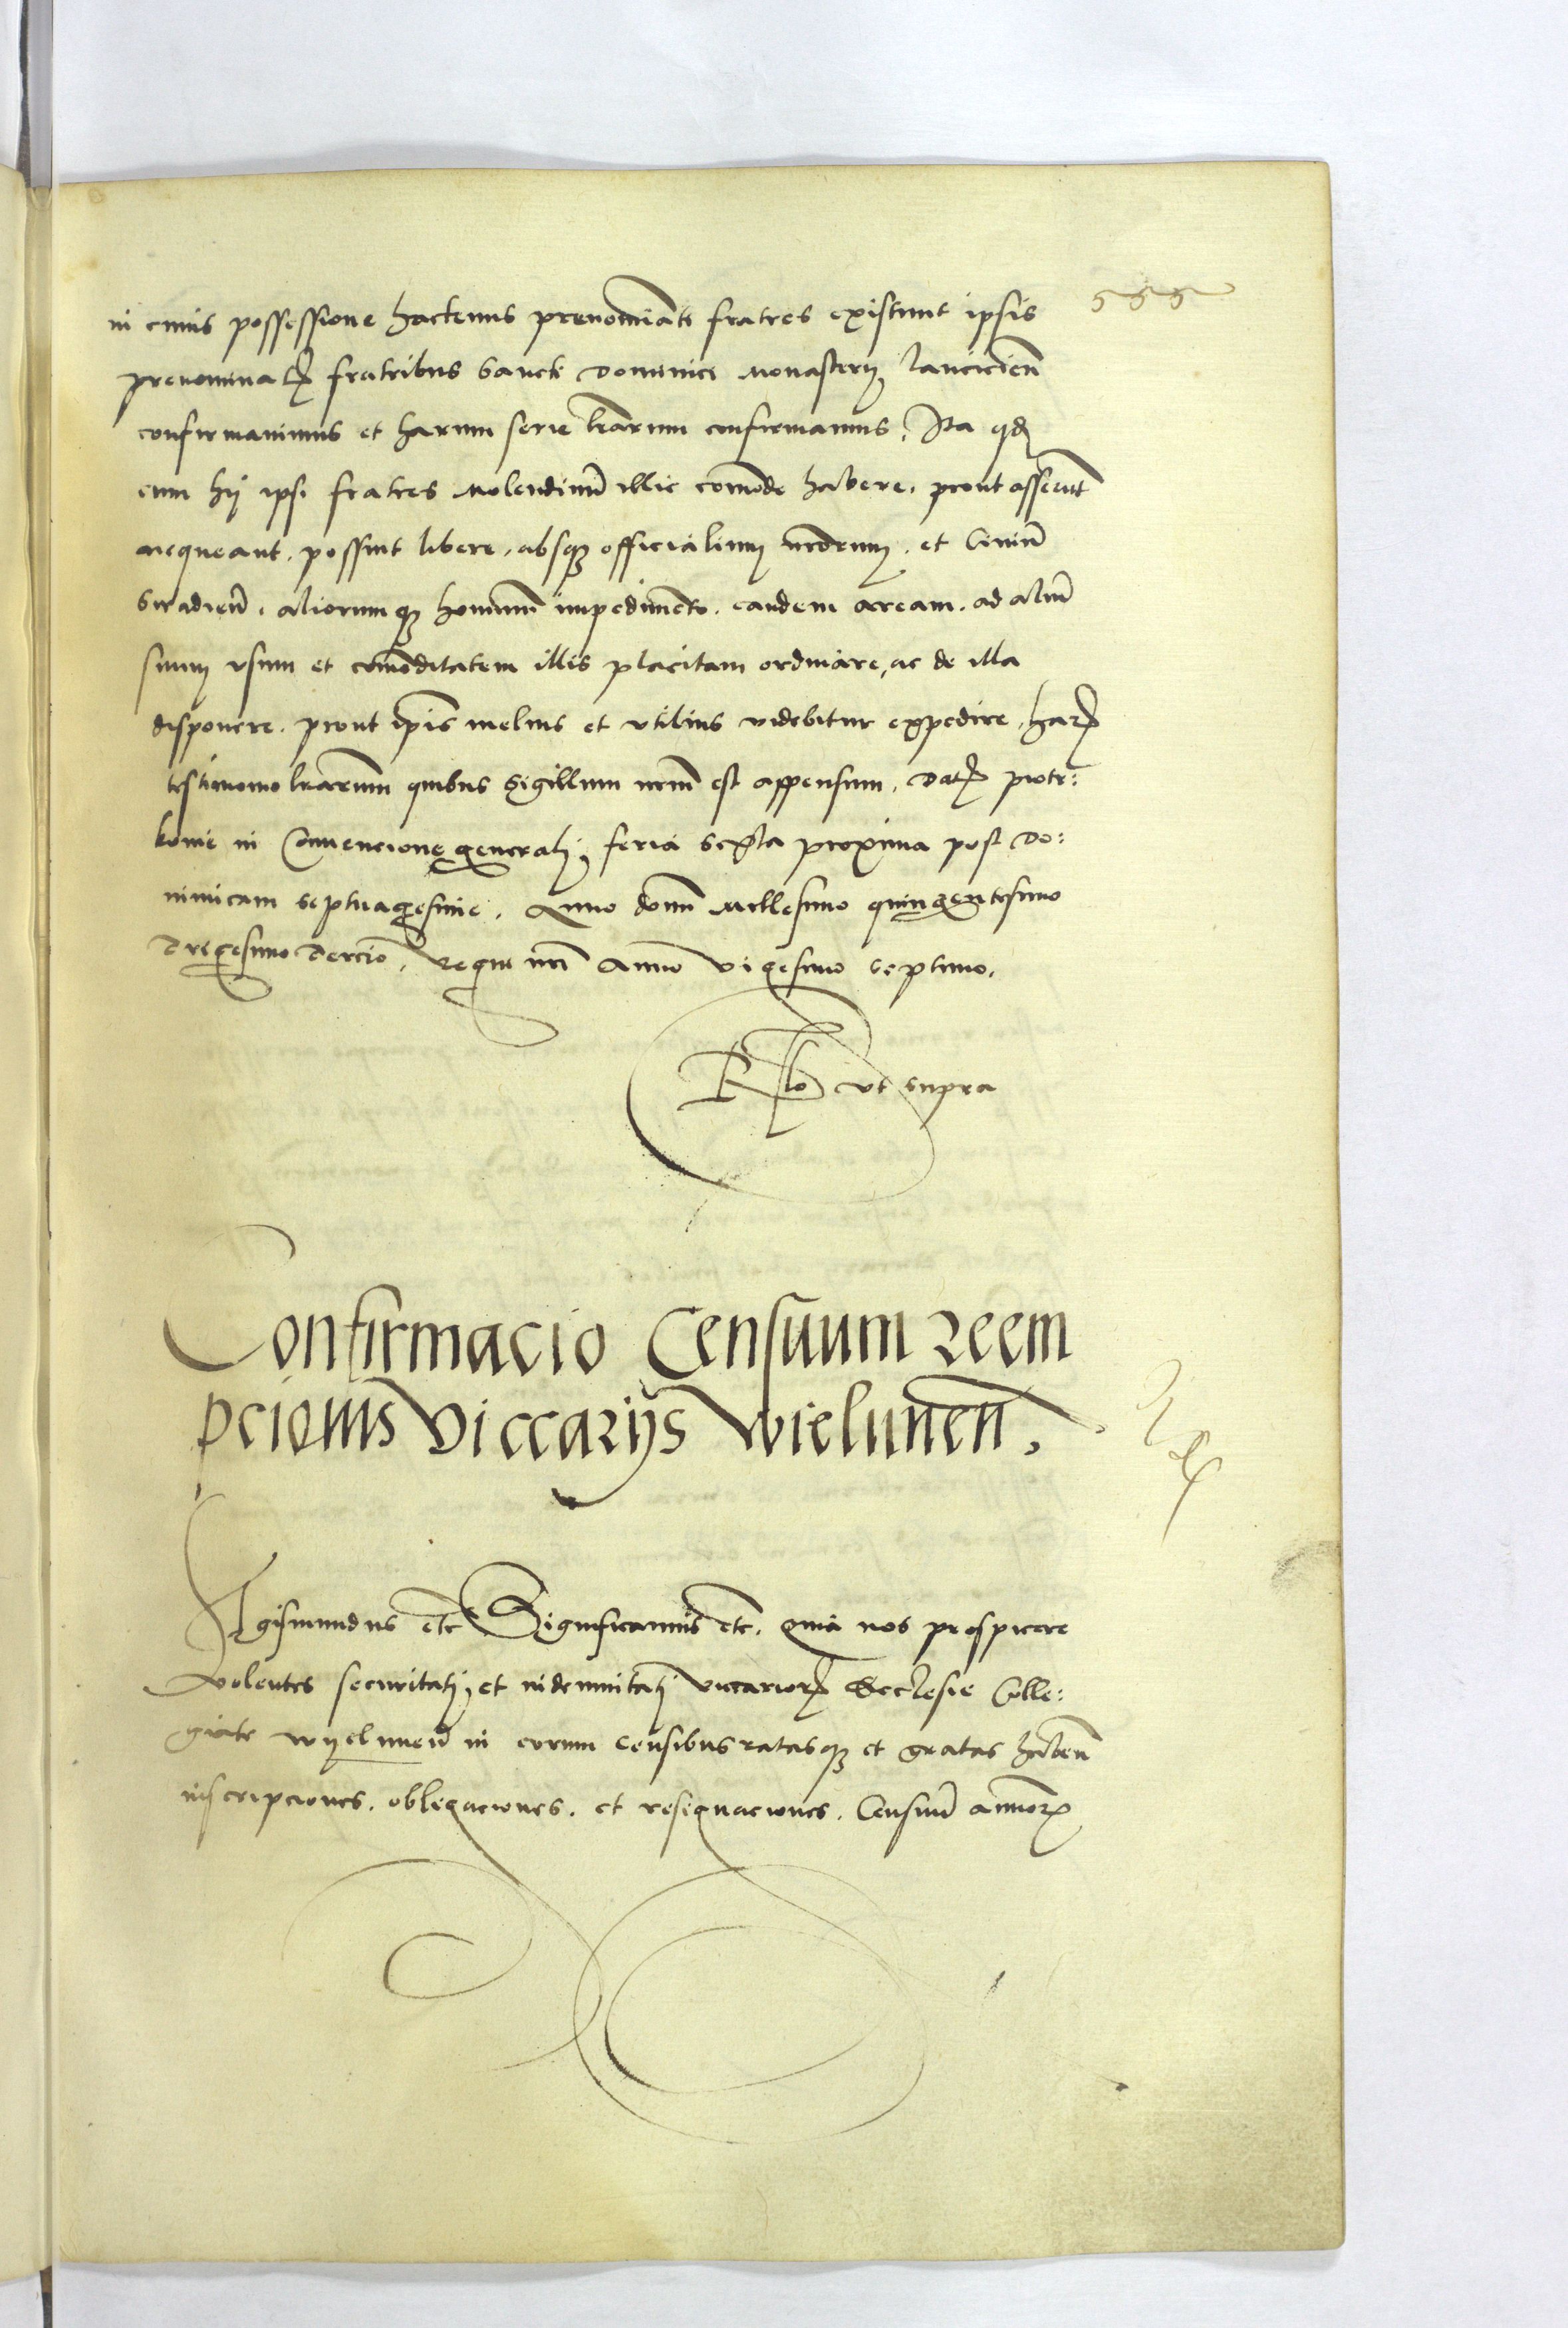 555
in cuius possessione hactenus prenominati fratres existunt ipsis
prenominatꝭ fratribus Sancti Dominici Monasterij Lancicień
confirmavimus et harum serie lrarum confirmamus, Ita qd
cum hij ipsi fratres Molendinū illic comode habere, prout asserūt
nequeant, possint libere, absqꝫ officialium nrorum, et Civiū
Siradień, aliorumqꝫ hominum impedimento, eandem aream, ad aliū
suum usum et comoditatem illis placitam ordinare, ac de illa
disponere, prout ipis melius et utilius videbitur expedire, harꝝ
testimonio lrarum quibus Sigillum nrum est appensum, Datꝭ piotr:
kovie in Convencione generali, feria sexta proxima post Do:
minicam Septuagesime, Anno domi Millesimo quingentesimo
Tricesimo Tercio, Regni nri Anno Vigesimo septimo.
Rlo ut supra
Confirmacio Censuum reem
pcionis Viccarijs Wielunen.
Sigismundus etc Significamus etc. quia nos prospicere
volentes securitati, et indemnitati viccariorꝝ Ecclesie Colle:
giate Wyelunēn in eorum censibus ratasqꝫ et gratas habēn
inscripciones, obligaciones, et resignaciones, Censuū annuorꝝ